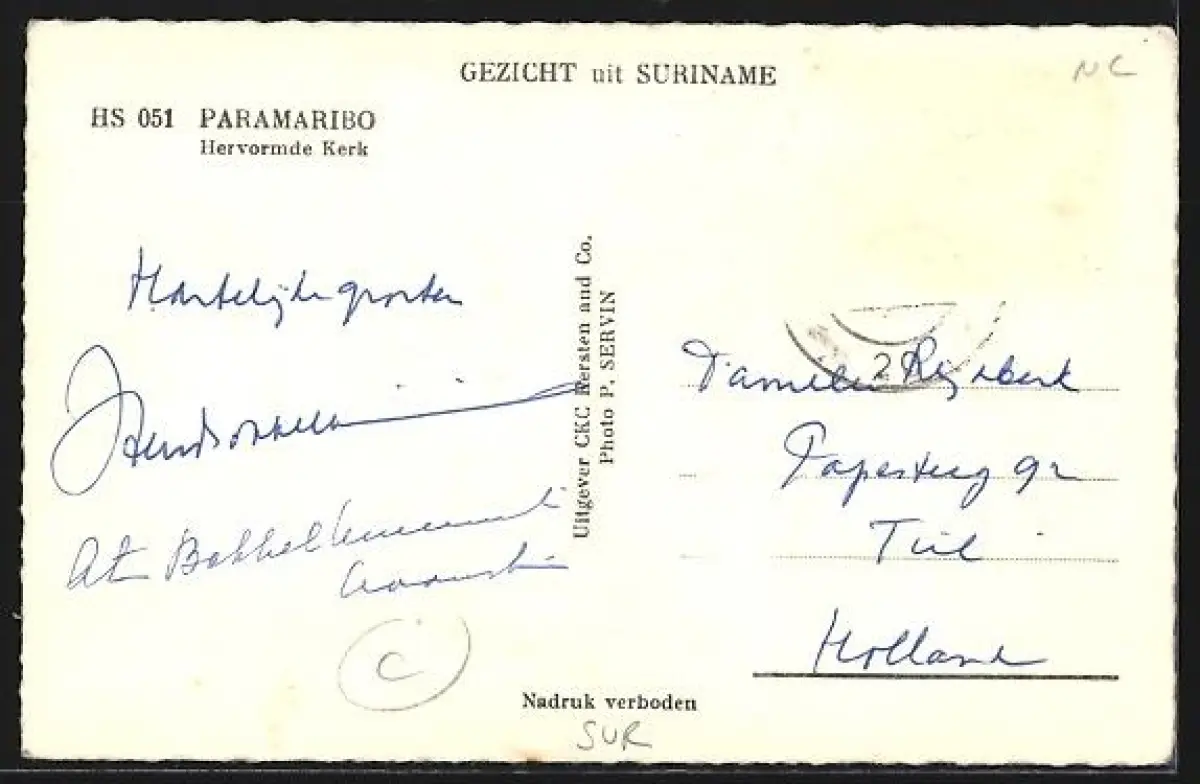 GEZICHT uit SURINAME
NC
HS 051 PARAMARIBO
Hervormde Kerk
Hartelijke groeten
At Bakkel
Uitgever CKC Kersten and Co.
Photo P. SERVIN
2
Familie
Papesteeg 92
Tiel
Holland
C
Nadruk verboden
SUR